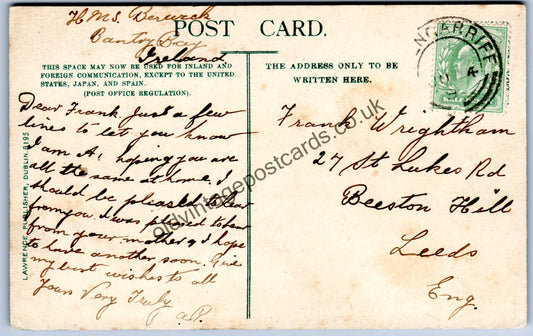 HMS Berwick
Bantry Bay
Ireland
POST CARD.
THIS SPACE MAY NOW BE USED FOR INLAND AND
FOREIGN COMMUNICATION, EXCEPT TO THE UNITED
STATES, JAPAN, AND SPAIN.
(POST OFFICE REGULATION).
THE ADDRESS ONLY TO BE
WRITTEN HERE.
Dear Frank Just a few
lines to let you know
I am A1 hoping you are
all the same at home. I
should be pleased to hear
from you. I was pleased to hear
from your mother & I hope
to have another soon. Give
my best wishes to all
Yours Very Truly
Frank Wrightham
27 St Lukes Rd
Beeston Hill
Leeds
Eng.
LAWRENCE, PUBLISHER, DUBLIN. 8195
oldvintagepostcards.co.uk